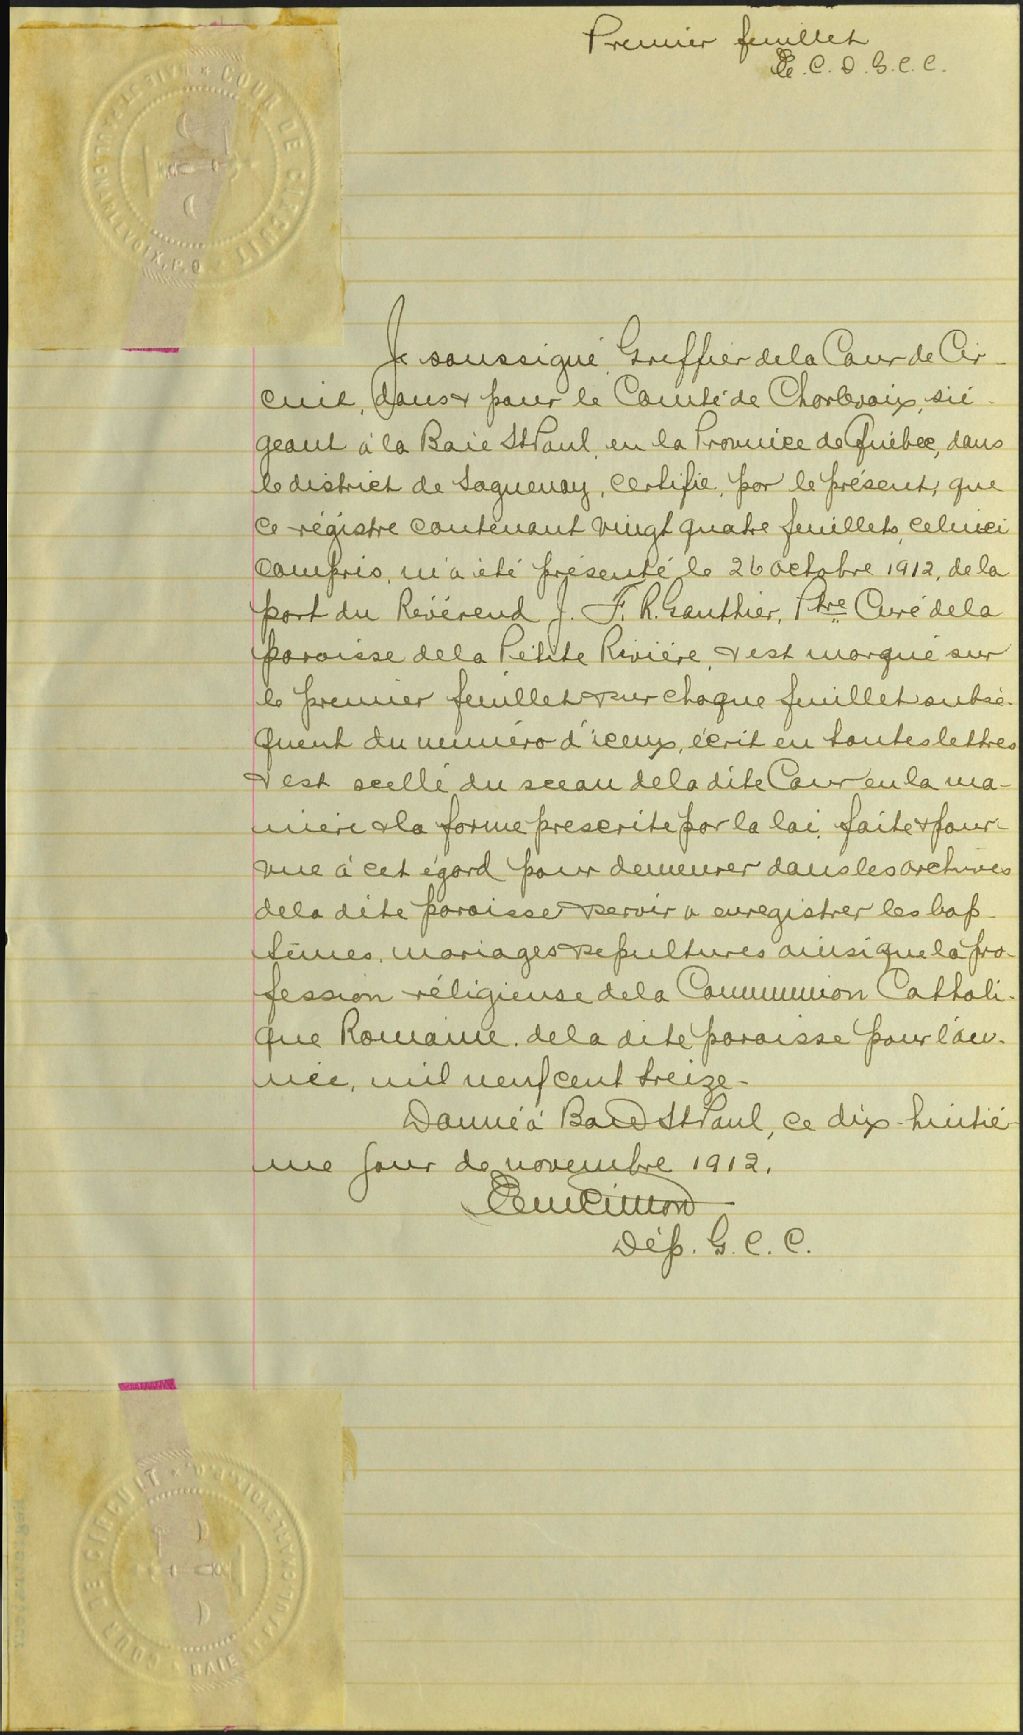 Premier feuillet
E. C. D. G. C. C.
COUR DE CIRCUIT BAIE ST PAUL CHARLEVOIX, P.Q.
Je soussigné, Greffier de la Cour de Cir-
cuit, dans & pour le Comté de Charlevoix, sié-
geant à la Baie St Paul, en la Province de Québec, dans
le district de Saguenay, certifie, par le présent, que
ce régistre contenant vingt quatre feuillets, celui ci
compris, m'a été présenté le 26 octobre 1912, de la
part du Révérend J. F. R. Gauthier, Ptre Curé de la
paroisse de la Petite Rivière, & est marqué sur
le premier feuillet & sur chaque feuillet subsé-
quent du numéro d'iceux, écrit en toutes lettres
& est scellé du sceau de la dite Cour en la ma-
nière & la forme prescrite par la loi, faite & pour-
vue à cet égard pour demeurer dans les archives
de la dite paroisse & servir à enregistrer les bap-
têmes, mariages & sepultures ainsi que la pro-
fession réligieuse de la Communion Catholi-
que Romaine, de la dite paroisse pour l'an-
née, mil neuf cent treize.
Donné à Baie St Paul, ce dix-huitiè
me jour de novembre 1912.
Dép. G. C. C.
COUR DE CIRCUIT BAIE ST PAUL CHARLEVOIX, P.Q.